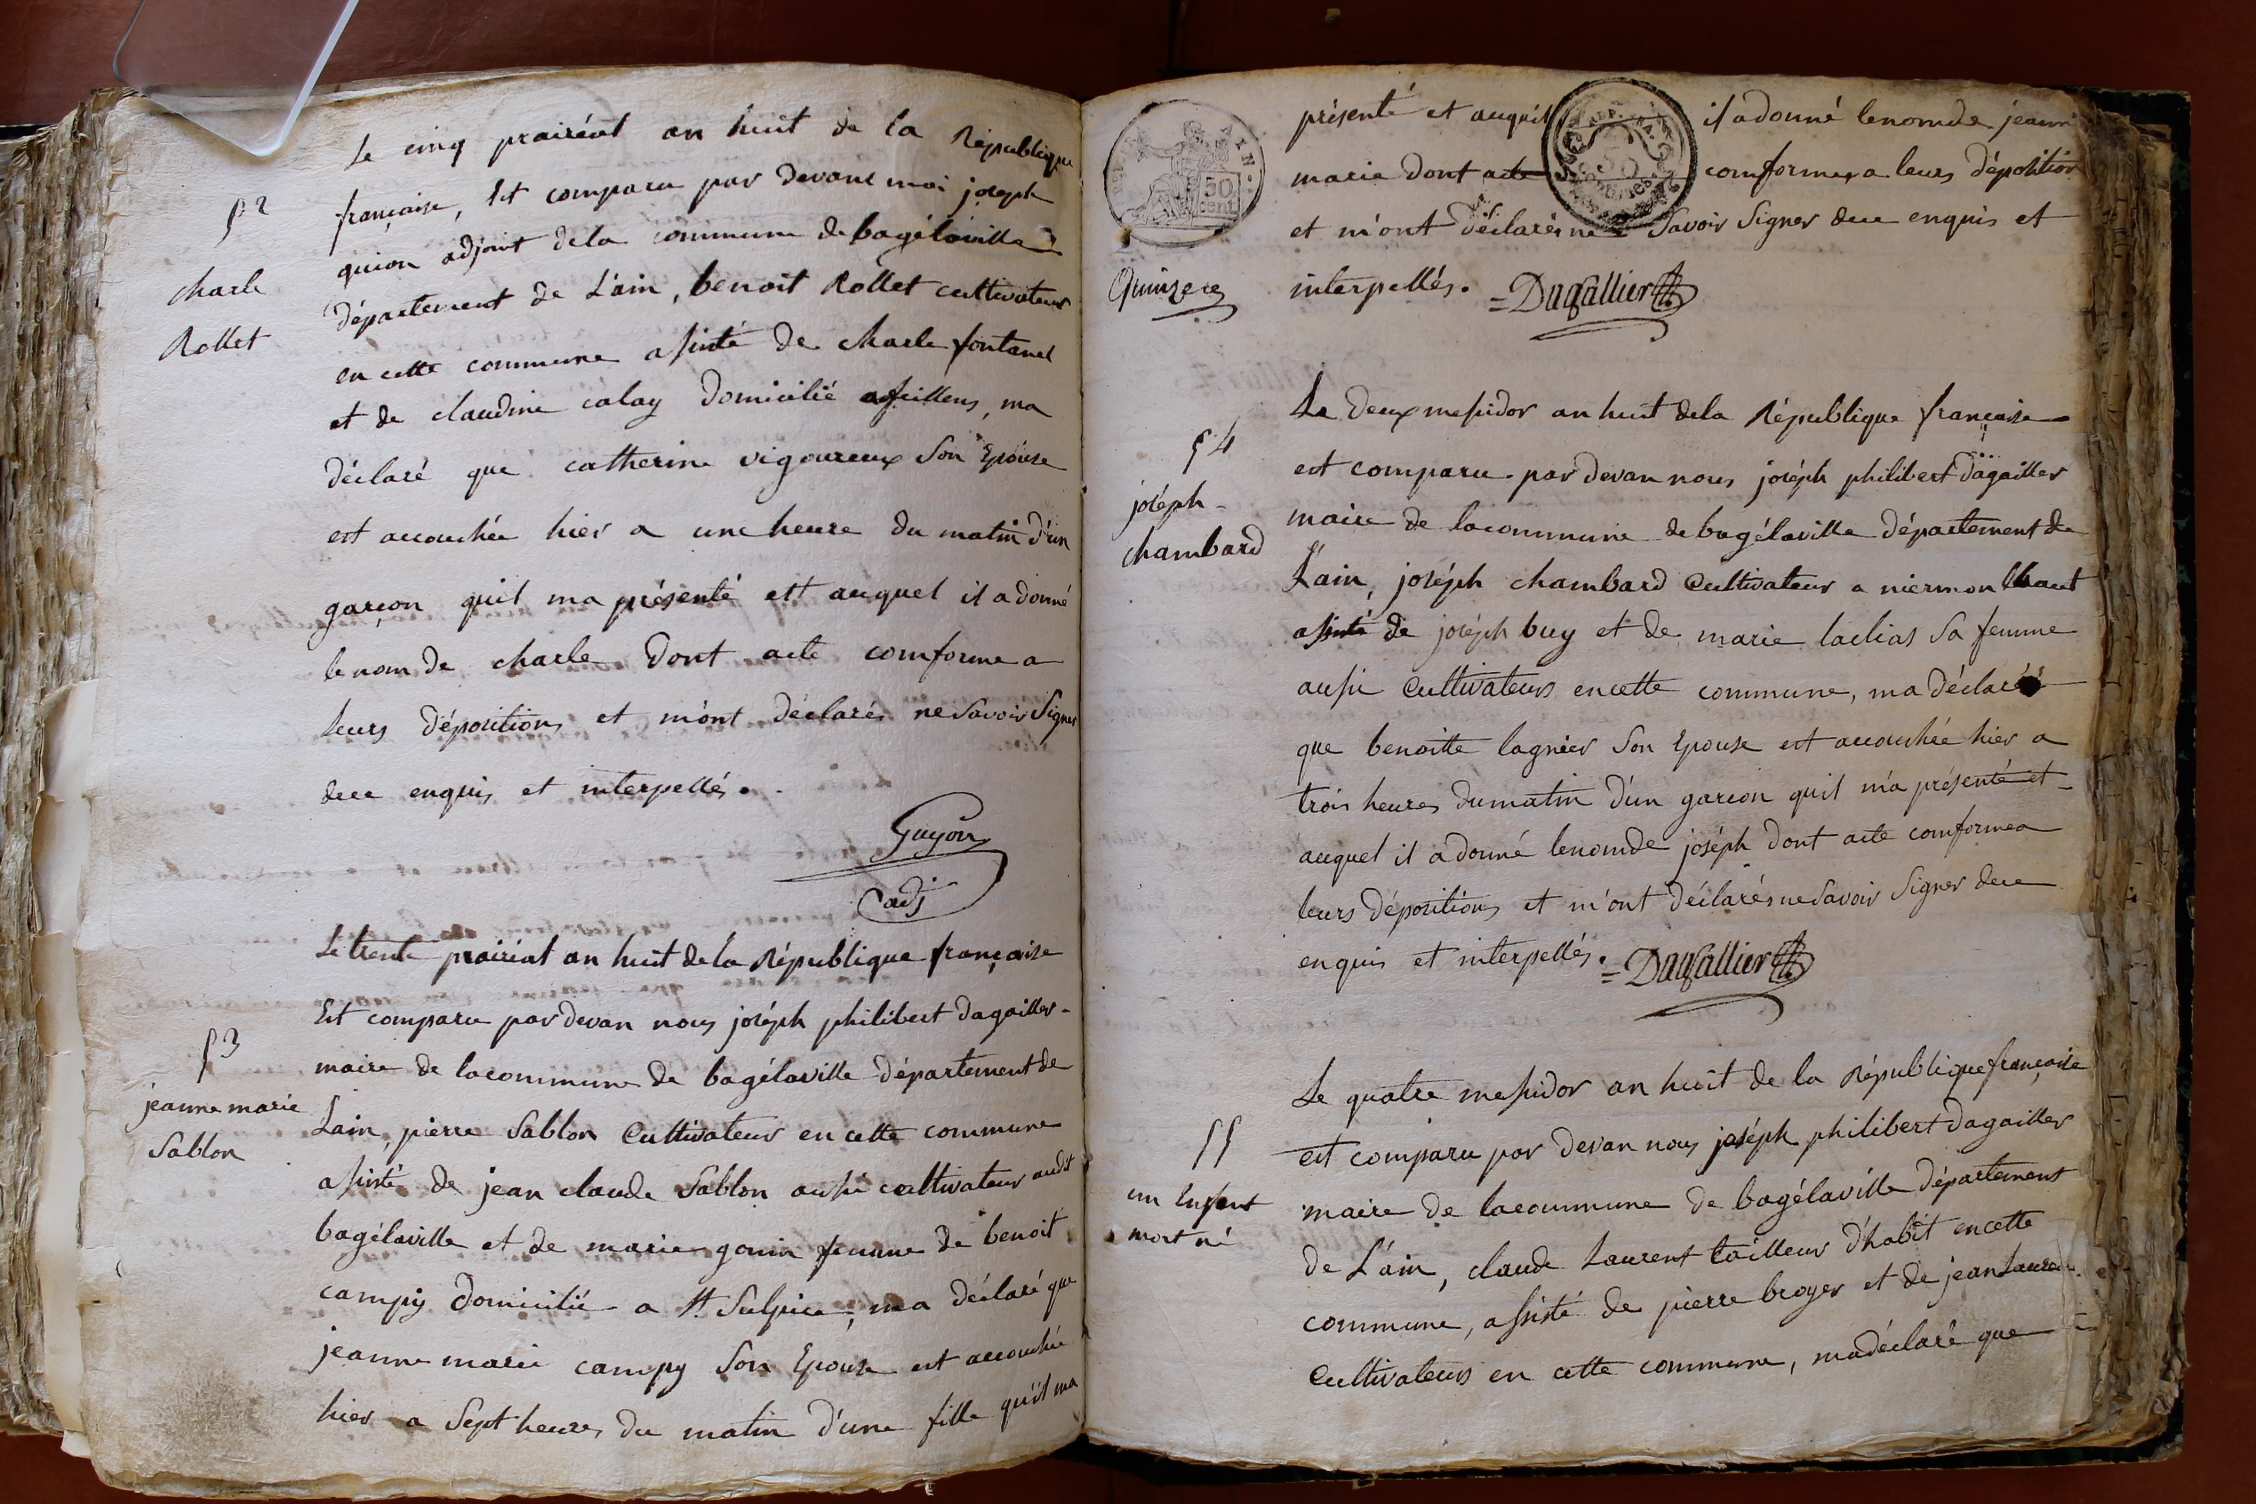 52
charle
Rollet
Le cinq prairéal an huit de la République
française, Est comparu par devant moi joseph
guion adjoint dela commune de bagélaville
département de L'ain, benoit Rollet cultivateur
en cette commune assisté de charle fontanel
et de claudine calay domicilié a feillens, ma
déclaré que catherine vigoureux son Epouse
est accouchée hier a une heure du matin d'un
garçon quil ma présenté ett auquel il a donné
le nom de charle dont acte comforme a
leurs dépositions et m'ont déclarés ne savoir signer
dece enquis et interpellés.
Guyon
adj
53
jeanne marie
Sablon
Le trente prairial an huit de la République française
Est comparu par devan nous joséph philibert dagallier
maire de lacommune de bagélaville département de
Lain, pierre Sablon Cultivateur en cette commune
assisté de jean claude Sablon aussi cultivateur audit
bagélaville et de marie gonin femme de benoit
campy domicilié a St. Sulpice, ma déclaré que
jeanne marie campy son Epouse est accouchée
hier a sept heures du matin d'une fille qu'il ma
50
cent
présenté et auquel il a donné lenomde jeanne
marie dont acte comforme a leurs déposition
et m'ont déclarés ne Savoir Signer dece enquis et
interpellés. = Dagallier
54
joséph
chambard
Le deux messidor an huit dela République française
est comparu par devan nous joséph philibert dagallier
maire de lacommune de bagélaville département de
L'ain, joséph chambard Cultivateur a niermon lhaut
assisté de joséph buy et de marie laclias sa femme
aussi Cultivateurs encette commune, ma déclaré
que benoitte lagnier son Epouse est accouchée hier a
trois heures dumatin d'un garcon quil m'a présenté et
auquel il a donné lenomde joséph dont acte comforme a
leurs dépositions et m'ont déclarés ne Savoir Signer dece
enquis et interpellés. = Dagallier
55
un Enfant
mort né
Le quatre messidor an huit de la République française
est comparu par devan nous joséph philibert dagallier
maire de lacommune de bagélaville département
de L'ain, claude Laurent tailleur d'habit encette
commune, assisté de pierre broyer et de jean Laurent
Cultivateurs en cette commune, madéclaré que